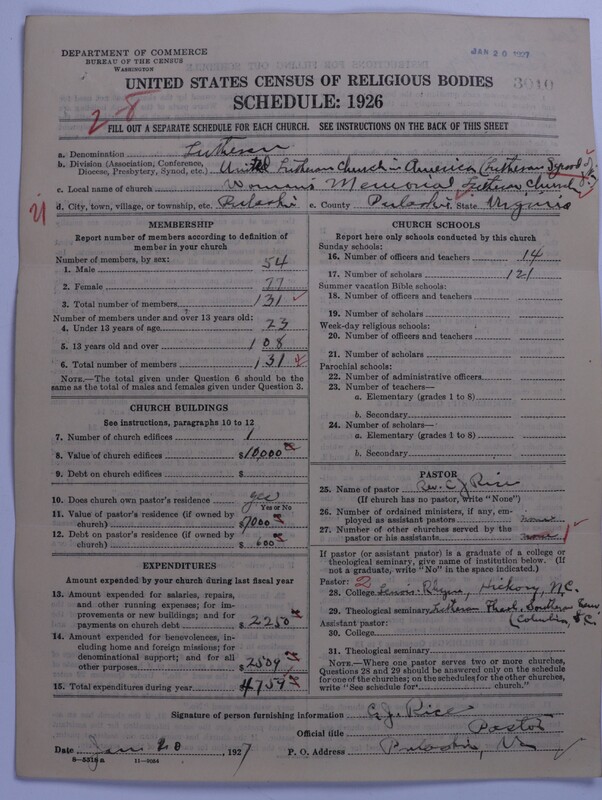 DEPARTMENT OF COMMERCE
BUREAU OF THE CENSUS
WASHINGTON
JAN 20 1927
3010
UNITED STATES CENSUS OF RELIGIOUS BODIES
SCHEDULE: 1926
2-8
FILL OUT A SEPARATE SCHEDULE FOR EACH CHURCH. SEE INSTRUCTIONS ON THE BACK OF THIS SHEET
a. Denomination Lutheran
b. Division (Association, Conference, Diocese, Presbytery, Synod, etc.) United Lutheran Church in America (Lutheran Synod of Va.
c. Local name of church Women's Memorial Lutheran Church
d. City, town, village, or township, etc. Pulaski e. County Pulaski, State Virginia
MEMBERSHIP
Report number of members according to definition of
member in your church
Number of members, by sex:
1. Male 54
2. Female 77
3. Total number of members 131
Number of members under and over 13 years old:
4. Under 13 years of age 23
5. 13 years old and over 108
6. Total number of members 131
NOTE.—The total given under Question 6 should be
same as the total of males and females given under Question 3.
CHURCH BUILDINGS
See instructions, paragraphs 10 to 12
7. Number of church edifices 1
8. Value of church edifices $10,000
9. Debt on church edifices $
10. Does church own pastor's residence yes
Yes or No
11. Value of pastor's residence (if owned by
church) $7000
12. Debt on pastor's residence (if owned by
church) $600
EXPENDITURES
Amount expended by your church during last fiscal year
13. Amount expended for salaries, repairs,
and other running expenses; for im-
provements or new buildings; and for
payments on church debt $2250
14. Amount expended for benevolences, in-
cluding home and foreign missions; for
denominational support; and for all
other purposes $2509
15. Total expenditures during year $4759
CHURCH SCHOOLS
Report here only schools conducted by this church
Sunday schools:
16. Number of officers and teachers 14
17. Number of scholars 121
Summer vacation Bible schools:
18. Number of officers and teachers
19. Number of scholars
Week-day religious schools:
20. Number of officers and teachers
21. Number of scholars
Parochial schools:
22. Number of administrative officers
23. Number of teachers—
a. Elementary (grades 1 to 8)
b. Secondary
24. Number of scholars—
a. Elementary (grades 1 to 8)
b. Secondary
PASTOR
25. Name of pastor Rev. C. J. Rice
(If church has no pastor, write "None")
26. Number of ordained ministers, if any, em-
ployed as assistant pastors none
27. Number of other churches served by the
pastor or his assistants none 1
If pastor (or assistant pastor) is a graduate of a college or
theological seminary, give name of institution below. (If
not a graduate, write "No" in the space indicated.)
Pastor: 2
28. College Lenoir-Rhyne, Hickory, N.C.
29. Theological seminary Lutheran Theol. Southern Sem.
(Columbia, S.C.
Assistant pastor:
30. College
31. Theological seminary
NOTE.—Where one pastor serves two or more churches,
Questions 28 and 29 should be answered only on the schedule
for one of the churches; on the schedules for the other churches,
write "See schedule for church."
Signature of person furnishing information C. J. Rice
Official title Pastor
Date Jan 20 1927 P. O. Address Pulaski, Va
8—5318a 11—9064